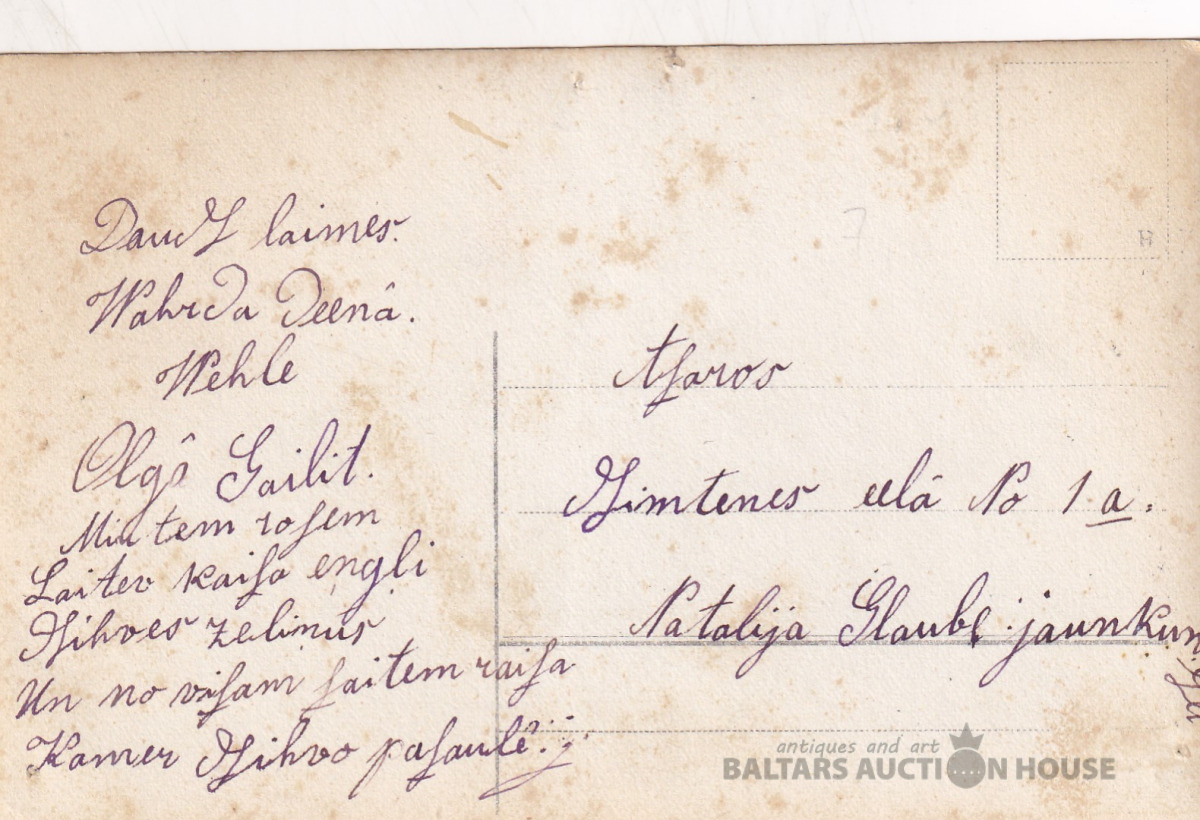 Daudʒ laimes.
Wahrda deenâ.
Wehle
Olgô Gailit.
Mintem roſem
Laitev kaiſa engli
Dſihves zelinus
Un no viſam ſaitem raiſa
Kamer Dſihvo paſaulê.
H
Aſaros
Dſimtenes eelâ No 1 a.
Natalija Glaube jaunkun
antiques and art
BALTARS AUCTION HOUSE